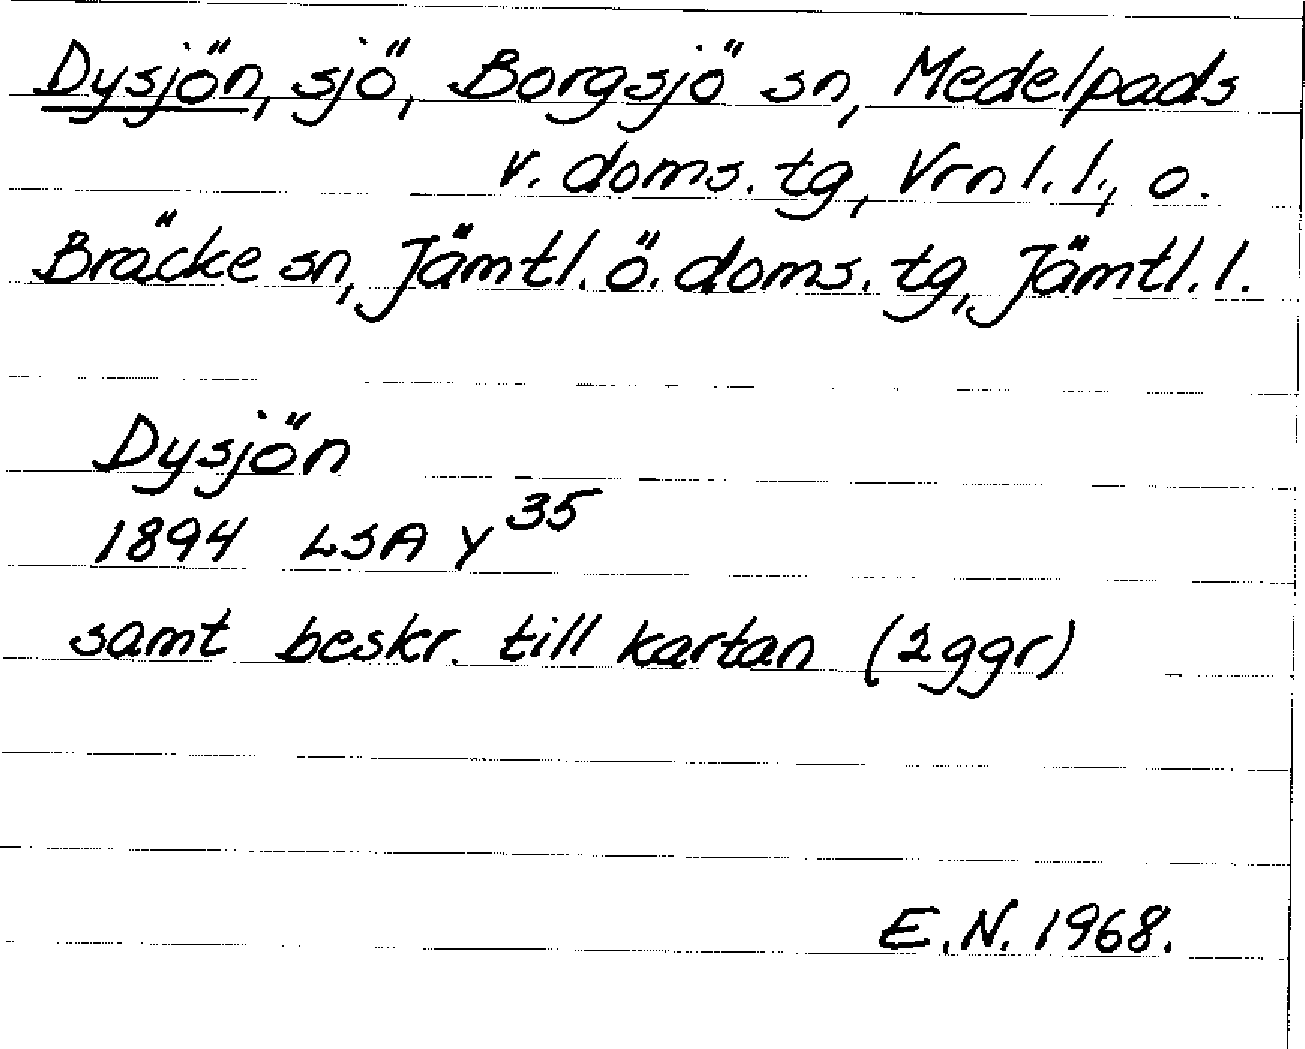 Dysjön, sjö, Borgsjö sn, Medelpads
v. doms. tg, Vrnl. l., o.
Bräcke sn, Jämtl. ö. doms. tg, Jämtl. l.
Dysjön
1894 LSA Y 35
samt beskr. till kartan (2 ggr)
E.N. 1968.